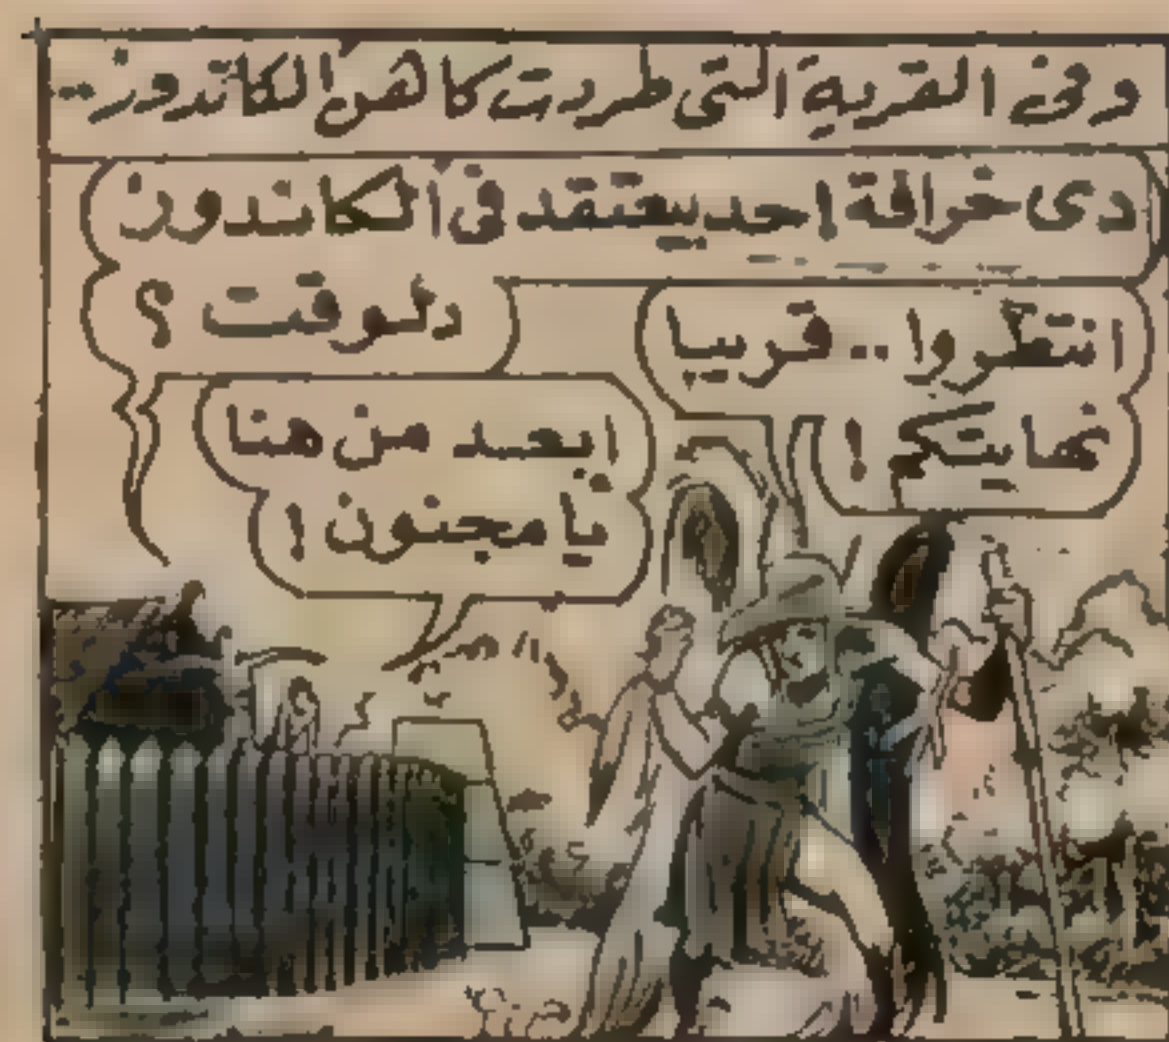 وفى القرية التى طردت كاهن الكاندوز..
دى خرافة احد يعتقد فى الكاندوز
دلوقت ؟
انتظروا .. قريبا
نهايتكم !
ابعد من هنا
يا مجنون !